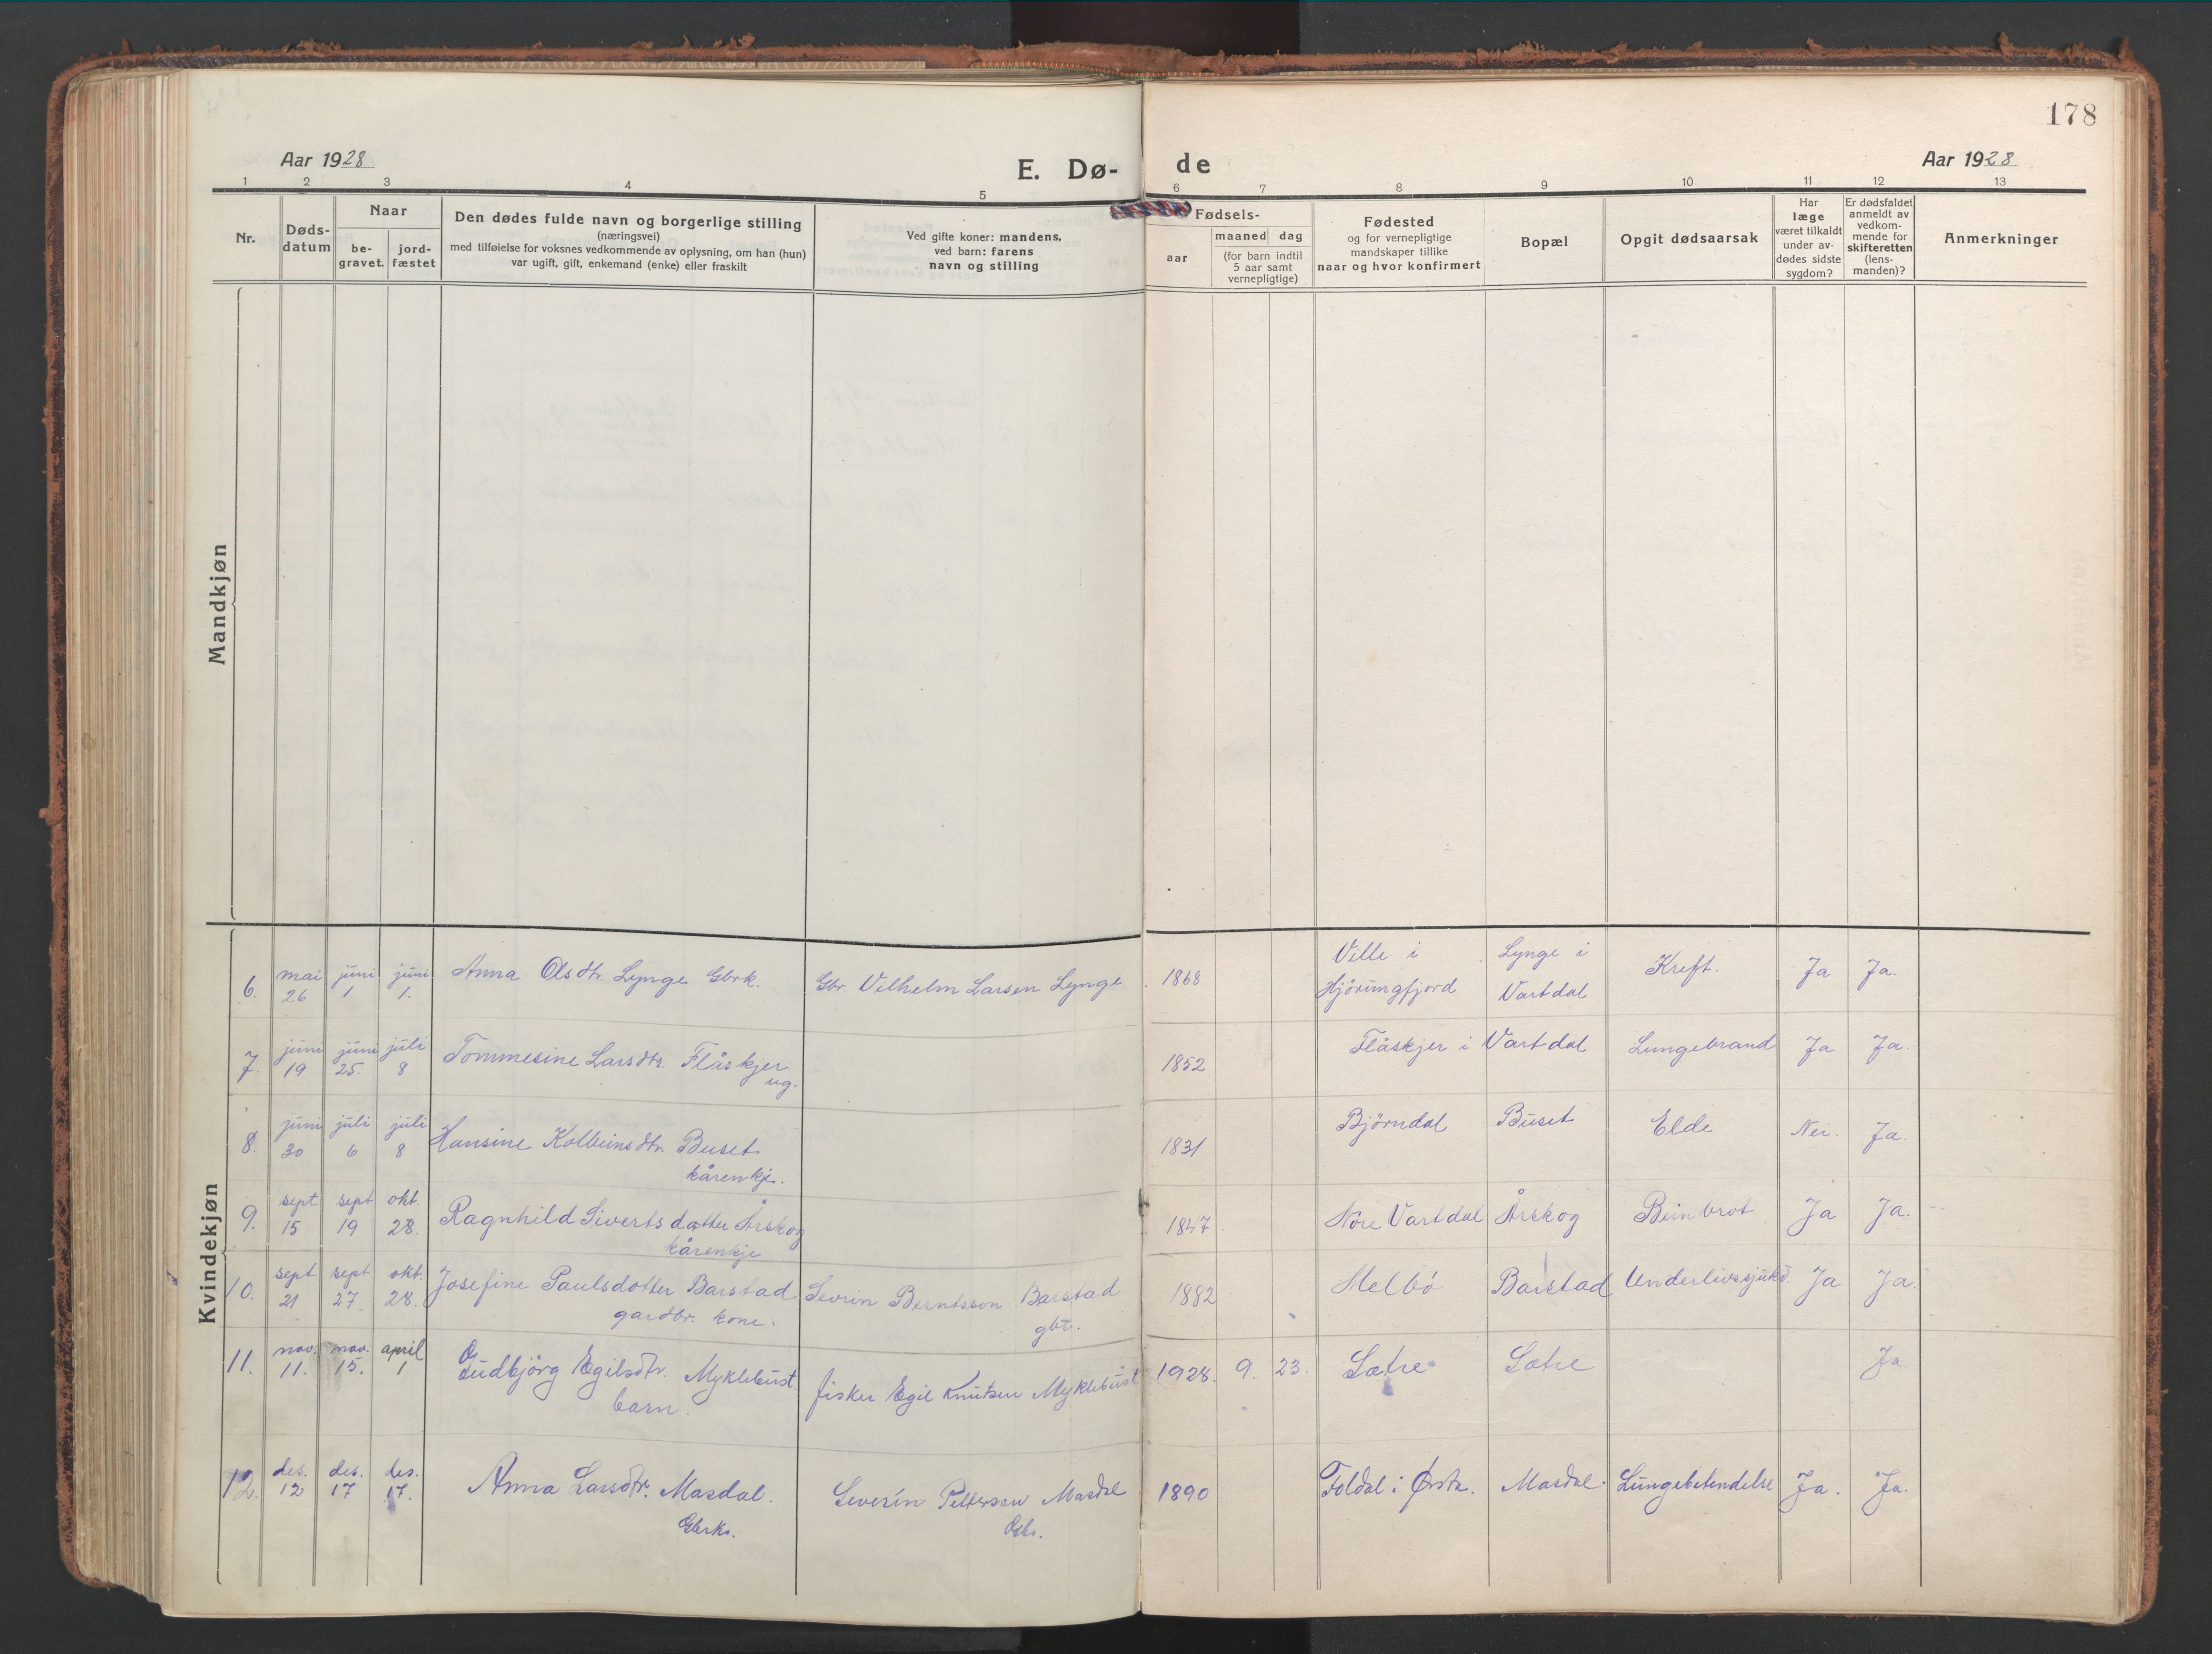 178
Aar 1928
E. Dø-
de
Aar 1928
1 2 3 4 5 6 7 8 9 10 11 12 13
Nr.
Døds-
datum
Naar
be-
gravet.
jord-
fæstet
Den dødes fulde navn og borgerlige stilling
(næringsvei)
med tilføielse for voksnes vedkommende av oplysning, om han (hun)
var ugift, gift, enkemand (enke) eller fraskilt
Ved gifte koner: mandens,
ved barn: farens
navn og stilling
Fødsels-
aar
maaned dag
(for barn indtil
5 aar samt
vernepligtige)
Fødested
og for vernepligtige
mandskaper tillike
naar og hvor konfirmert
Bopæl
Opgit dødsaarsak
Har
læge
været tilkaldt
under av-
dødes sidste
sygdom?
Er dødsfaldet
anmeldt av
vedkom-
mende for
skifteretten
(lens-
manden)?
Anmerkninger
Mandkjøn
Kvindekjøn
6. mai 26 juni 1. juni 1. Anna Olsdtr. Lynge Gbrk. Gbr Vilhelm Larsen Lynge 1868 Ville i Hjörungfjord Lynge i Vartdal Kreft. Ja Ja.
7. juni 19 juni 25. juli 8 Tommesine Larsdtr. Flåskjer ug. 1852 Flåskjer i Vartdal Lungebrand Ja Ja.
8. juni 30 juli 6 juli 8 Hansine Kolbeinsdtr. Buset kårenkje. 1831 Björndal Buset Elde Nei. Ja.
9. sept 15 sept 19 okt. 28. Ragnhild Sivertsdatter Årskog kårenkje 1847 Nöre Vartdal Årskog Beinbrot Ja Ja.
10. sept 21 sept 27. okt. 28. Josefine Paulsdotter Barstad gardbr. kone. Sevrin Berntsson Barstad gbr. 1882 Melbö Barstad Underlivssjukd. Ja Ja.
11. nov. 11. nov. 15. april 1 Gudbjörg Egilsdtr. Myklebust barn. fisker Egil Knutsen Myklebust 1928. 9. 23. Sætre Sætre Ja
12. des. 12 des. 17 des. 17. Anna Larsdtr. Masdal. Gbrk. Severin Pettersen Masdal Gbr. 1890 Foldal i Ørsta. Masdal. Lungebetendelse Ja. Ja.